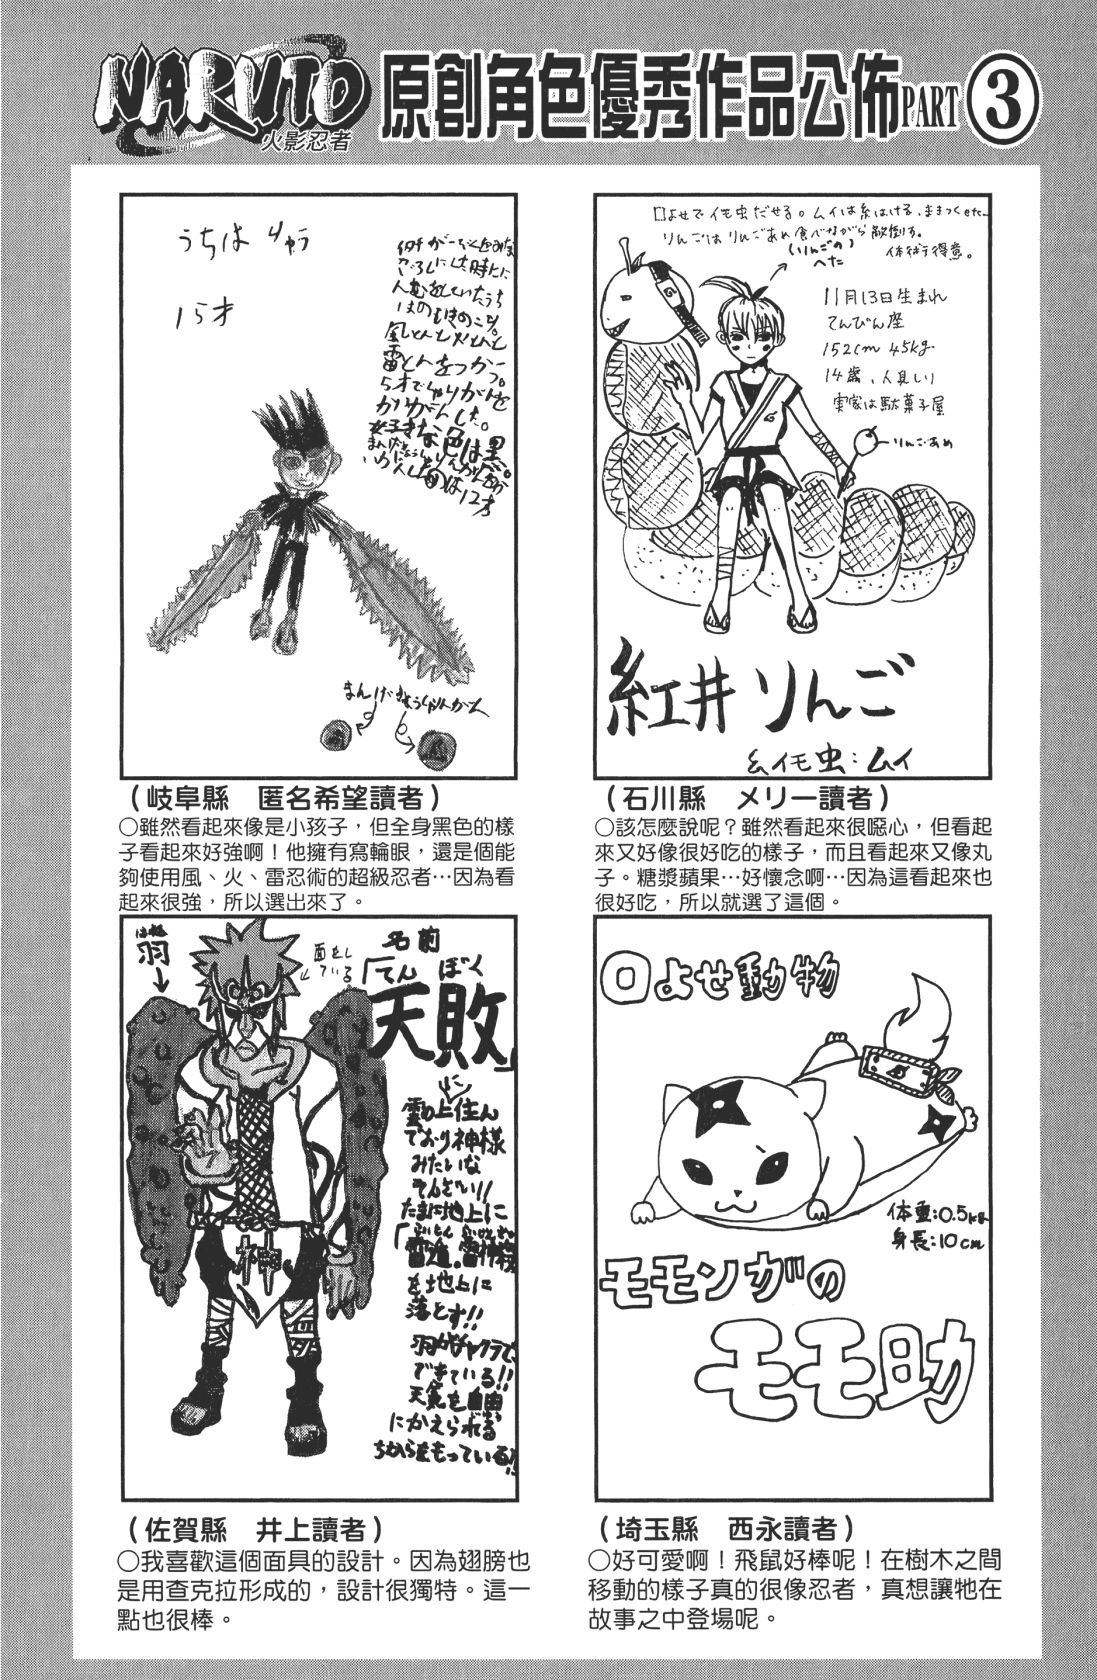 NARUTO
火影忍者
原創角色優秀作品公佈PART③
うちは
15才
風とんと火とんと
雷とんをつかう。
5才でしゃりんがんを
かいがんした。
好きな色は黒。
(岐阜縣 匿名希望讀者)
○雖然看起來像是小孩子，但全身黑色的樣
子看起來好強啊！他擁有寫輪眼，還是個能
夠使用風、火、雷忍術的超級忍者…因為看
起來很強，所以選出來了。
口よせでイモ虫だせる。ムイは糸はける、まきつくetc…
りんごはりんごあめ食べながら敵倒す。
(りんごの)
へた
体術得意。
11月13日生まれ
てんびん座
152cm 45kg
14歳、人見しり
実家は駄菓子屋
りんごあめ
紅井りんご
イモ虫：ムイ
(石川縣 メリー讀者)
○該怎麼說呢？雖然看起來很噁心，但看起
來又好像很好吃的樣子，而且看起來又像丸
子。糖漿蘋果…好懷念啊…因為這看起來也
很好吃，所以就選了這個。
はね
羽
面をし
ている
名前
「てんぼく
天敗」
雲の上に住ん
でおり神様
みたいな
そんざい!!
たまに地上に
を地上に
落とす!!
羽がチャクラで
できている!!
天気を自由
にかえられる
ちからをもっている!!
神
(佐賀縣 井上讀者)
○我喜歡這個面具的設計。因為翅膀也
是用查克拉形成的，設計很獨特。這一
點也很棒。
口よせ動物
体重:0.5kg
身長:10cm
モモンガの
モモ助
(埼玉縣 西永讀者)
○好可愛啊！飛鼠好棒呢！在樹木之間
移動的樣子真的很像忍者，真想讓牠在
故事之中登場呢。